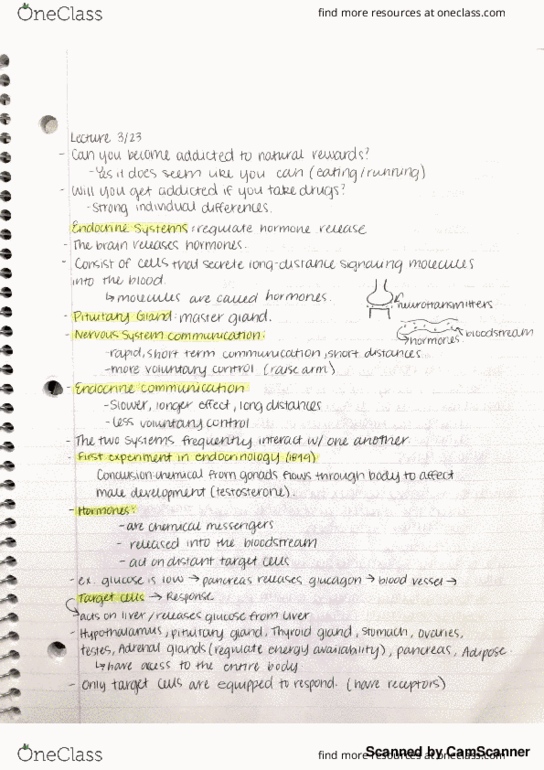 OneClass
find more resources at oneclass.com
Lecture 3/23
- Can you become addicted to natural rewards?
- Yes it does seem like you can (eating/running)
- Will you get addicted if you take drugs?
- Strong individual differences.
Endocrine Systems: regulate hormone release
- The brain releases hormones.
- Consist of cells that secrete long-distance signaling molecules
into the blood.
↳ molecules are called hormones.
neurotransmitters
- Pituitary Gland: master gland.
bloodstream
hormones
- Nervous System communication:
- rapid, short term communication, short distances
- more voluntary control (raise arm)
- Endocrine communication
- Slower, longer effect, long distances
- less voluntary control
- The two systems frequently interact w/ one another.
- First experiment in endocrinology (1849)
Conclusion: chemical from gonads flows through body to affect
male development (testosterone).
- Hormones:
- are chemical messengers
- released into the bloodstream
- act on distant target cells
- ex. glucose is low → pancreas releases glucagon → blood vessel →
Target cells → Response
acts on liver/releases glucose from liver
- Hypothalamus, pituitary gland, Thyroid gland, stomach, ovaries,
testes, Adrenal glands (regulate energy availability), pancreas, Adipose.
↳ have access to the entire body
- Only target cells are equipped to respond. (have receptors)
OneClass
find more resources at oneclass.com
Scanned by CamScanner